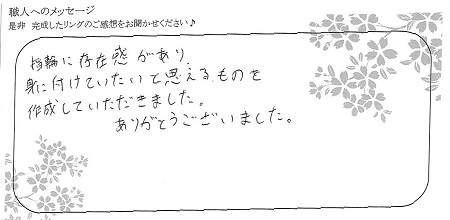 職人へのメッセージ
是非 完成したリングのご感想をお聞かせください♪
指輪に存在感があり、
身に付けていたいと思えるものを
作成していただきました。
ありがとうございました。